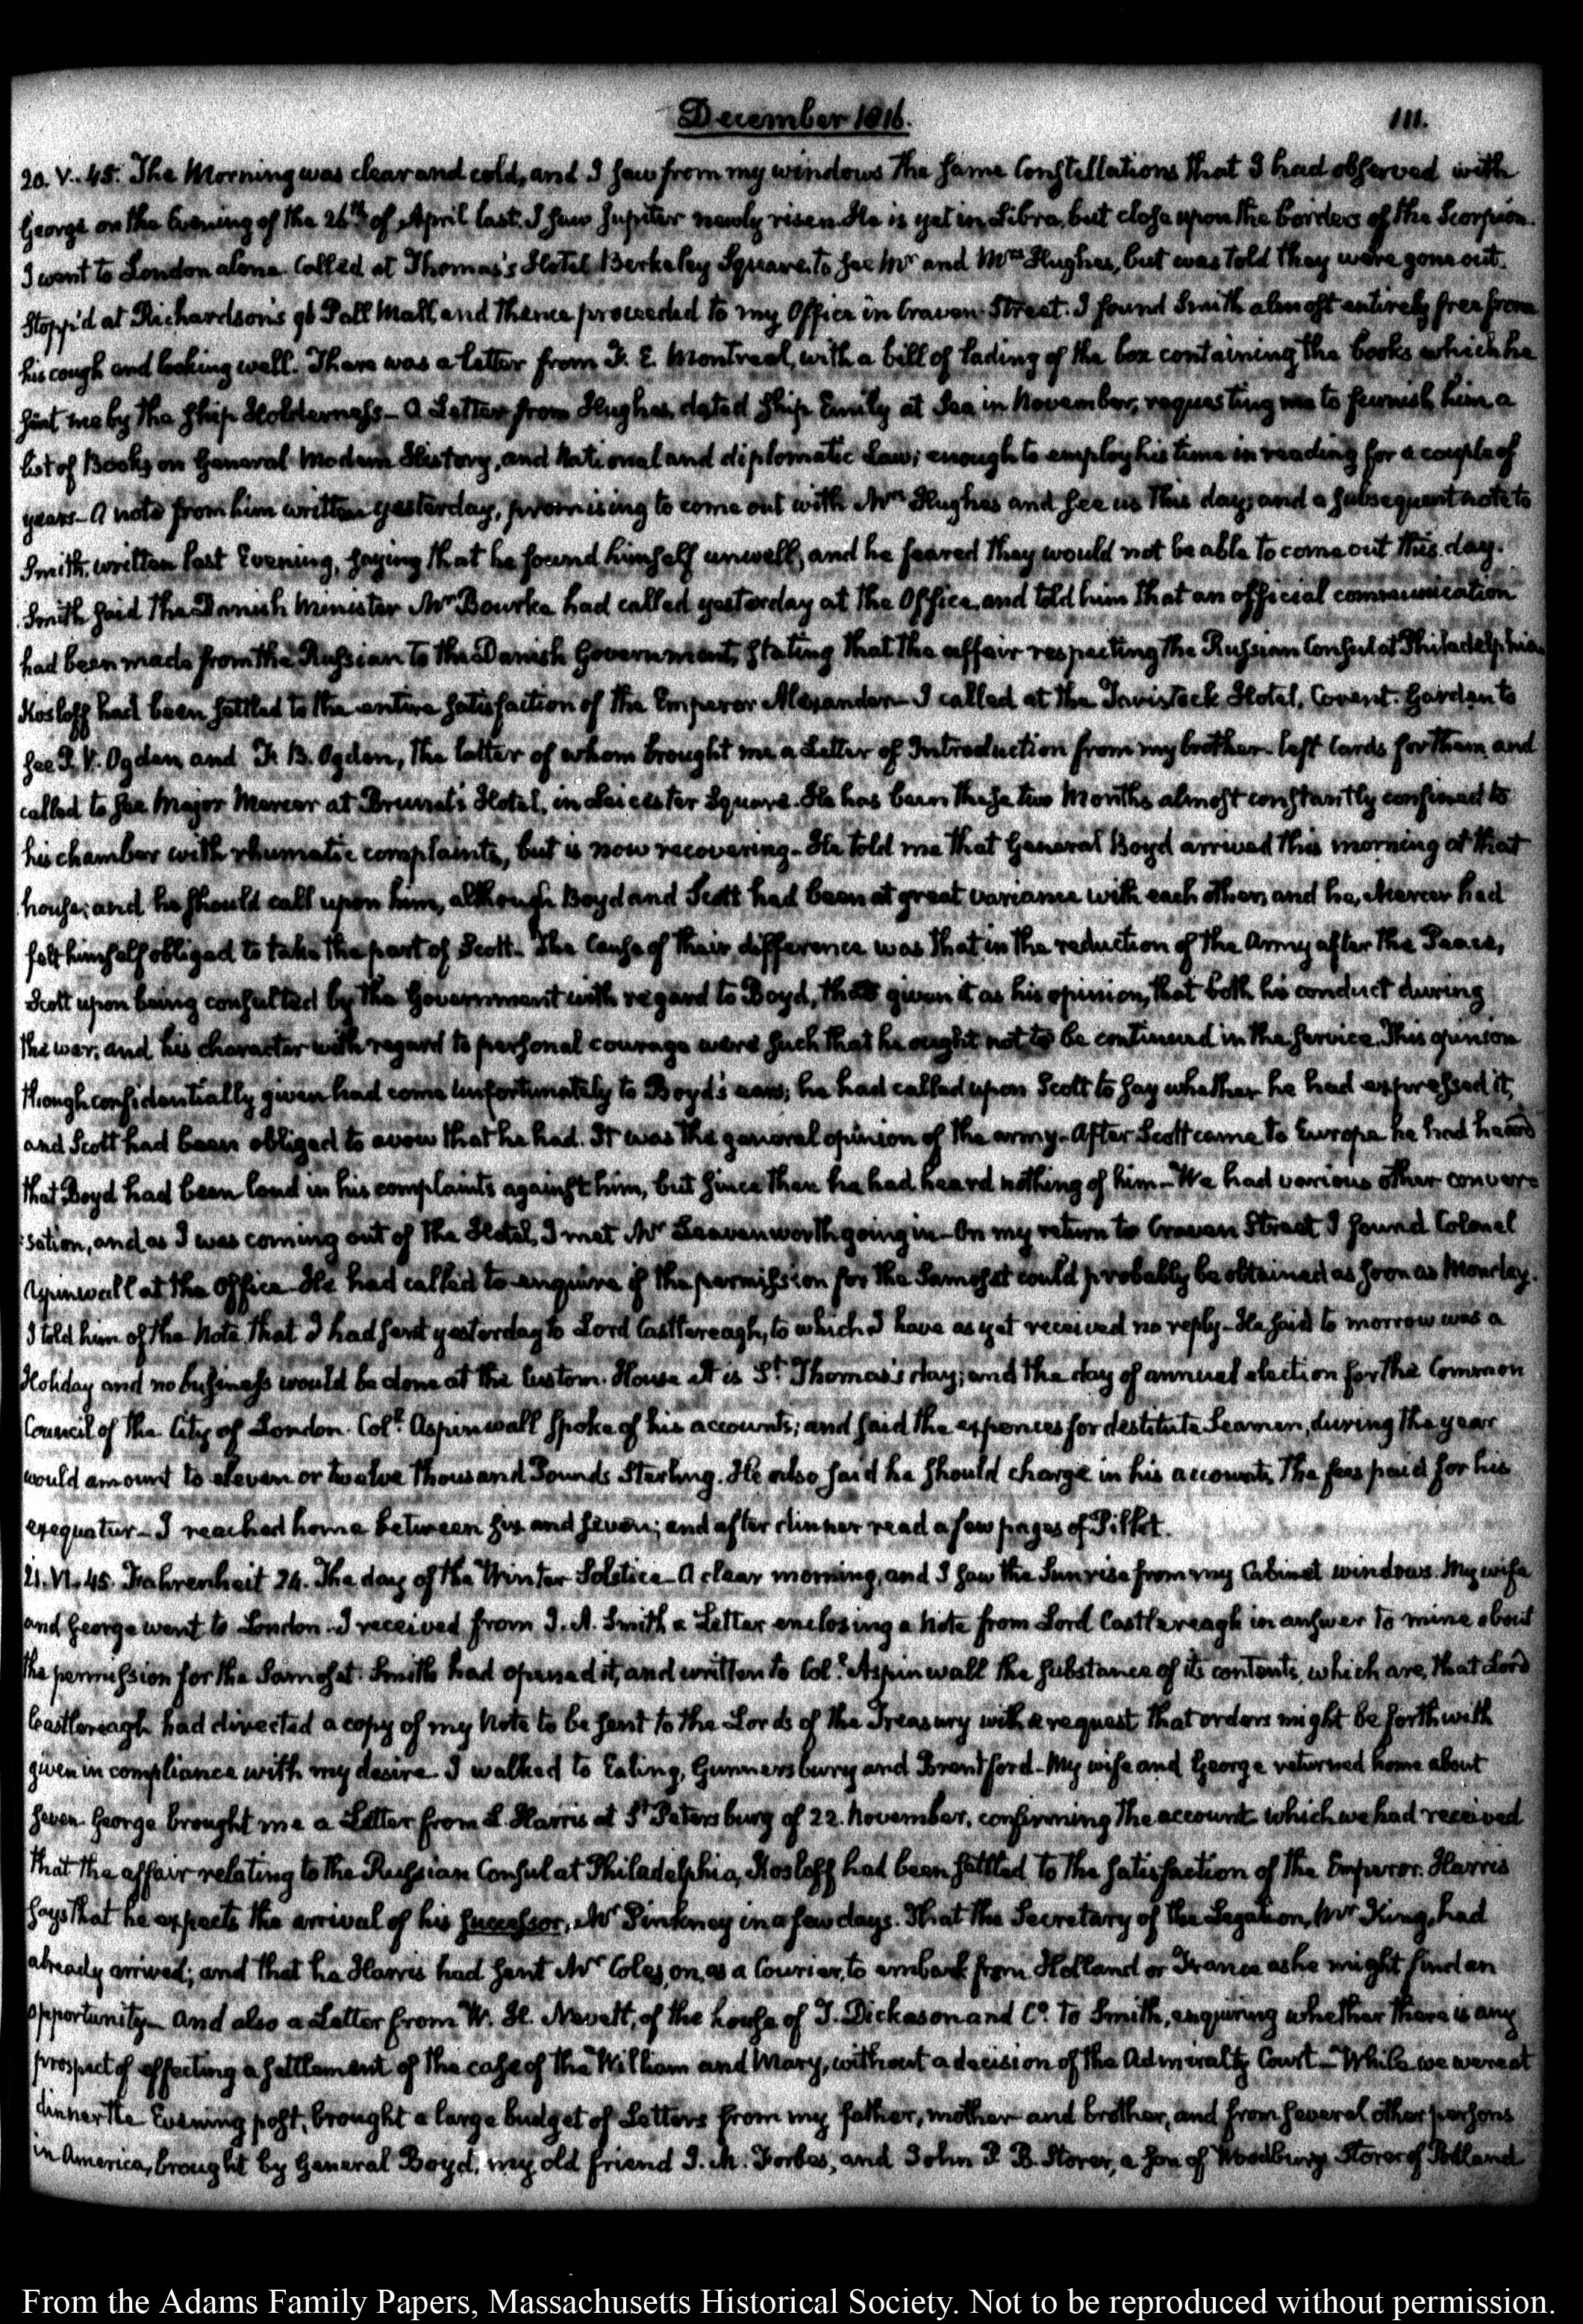 December 1816.
111.
20. V..45. The Morning was clear and cold, and I saw from my windows the same Constellations that I had observed with
George on the Evening of the 26th of April last. I saw Jupiter newly risen. He is yet in Libra, but close upon the borders of the Scorpion.
I went to London alone. Called at Thomas's Hotel Berkeley Square, to see Mr and Mrs Hughes, but was told they were gone out.
Stopp'd at Richardson's 96 Pall Mall, and thence proceeded to my Office in Craven Street. I found Smith almost entirely free from
his cough and looking well. There was a letter from F. E. Montreal, with a bill of lading of the box containing the books which he
sent me by the ship Holderness— A Letter from Hughes, dated ship Emily at Sea in November, requesting me to furnish him a
list of Books on General Modern History, and National and diplomatic Law; enough to employ his time in reading for a couple of
years— A note from him written yesterday, promising to come out with Mrs Hughes and see us this day; and a subsequent note to
Smith, written last Evening, saying that he found himself unwell, and he feared they would not be able to come out this day.
Smith said the Danish Minister Mr Bourke had called yesterday at the Office, and told him that an official communication
had been made from the Russian to the Danish Government, stating that the affair respecting the Russian Consul at Philadelphia
Kosloff had been settled to the entire satisfaction of the Emperor Alexander— I called at the Tavistock Hotel, Covent-Garden to
see P. V. Ogden and F. B. Ogden, the latter of whom brought me a Letter of Introduction from my brother— left Cards for them and
called to see Major Mercer at Brunet's Hotel, in Leicester Square. He has been these two Months almost constantly confined to
his chamber with rhumatic complaints, but is now recovering— He told me that General Boyd arrived this morning at that
house; and he should call upon him, although Boyd and Scott had been at great variance with each other; and he, Mercer had
felt himself obliged to take the part of Scott— The Cause of their difference was that in the reduction of the Army after the Peace,
Scott upon being consulted by the Government with regard to Boyd, had given it as his opinion, that both his conduct during
the war; and his character with regard to personal courage were such that he ought not to be continued in the service. This opinion
though confidentially given had come unfortunately to Boyd's ears; he had called upon Scott to say whether he had expressed it,
and Scott had been obliged to avow that he had. It was the general opinion of the army— After Scott came to Europe he had heard
that Boyd had been loud in his complaints against him, but since then he had heard nothing of him— We had various other conver=
=sation, and as I was coming out of the Hotel, I met Mr Leavenworth going in— On my return to Craven Street I found Colonel
Aspinwall at the Office— He had called to enquire if the permission for the Samoset could probably be obtained as soon as Monday.
I told him of the Note that I had sent yesterday to Lord Castlereagh, to which I have as yet received no reply— He said to morrow was a
Holiday and no business would be done at the Custom-House. It is St Thomas's day; and the day of annual election for the Common
Council of the City of London. Coll Aspinwall spoke of his accounts; and said the expences for destitute Seamen, during the year
would amount to eleven or twelve thousand Pounds Sterling. He also said he should charge in his accounts, The fees paid for his
exequatur— I reached home between six and seven; and after dinner read a few pages of Pillet.
21. VI..45. Fahrenheit 24. The day of the Winter Solstice— A clear morning, and I saw the Sun rise from my Cabinet windows. My wife
and George went to London— I received from J. A. Smith a Letter enclosing a Note from Lord Castlereagh in answer to mine about
the permission for the Samoset. Smith had opened it, and written to Coll Aspinwall the substance of its contents, which are, that Lord
Castlereagh had directed a copy of my Note to be sent to the Lords of the Treasury with a request that orders might be forthwith
given in compliance with my desire— I walked to Ealing, Gunnersbury and Brentford— My wife and George returned home about
seven. George brought me a Letter from L. Harris at St Petersburg of 22. November, confirming the account which we had received
that the affair relating to the Russian Consul at Philadelphia, Kosloff had been settled to the satisfaction of the Emperor. Harris
says that he expects the arrival of his successor, Mr Pinkney in a few days. That the Secretary of the Legation, Mr King, had
already arrived; and that he Harris had sent Mr Coles, on, as a Courier, to embark from Holland or France as he might find an
opportunity— And also a Letter from W. H. Nevett, of the house of T. Dickason and Co. to Smith, enquiring whether there is any
prospect of effecting a settlement of the case of the William and Mary, without a decision of the Admiralty Court— While we were at
dinner the Evening post, brought a large budget of Letters from my father, mother and brother, and from several other persons
in America, brought by General Boyd, my old friend J. M. Forbes, and John P. B. Storer, a son of Woodbury Storer of Portland
From the Adams Family Papers, Massachusetts Historical Society. Not to be reproduced without permission.